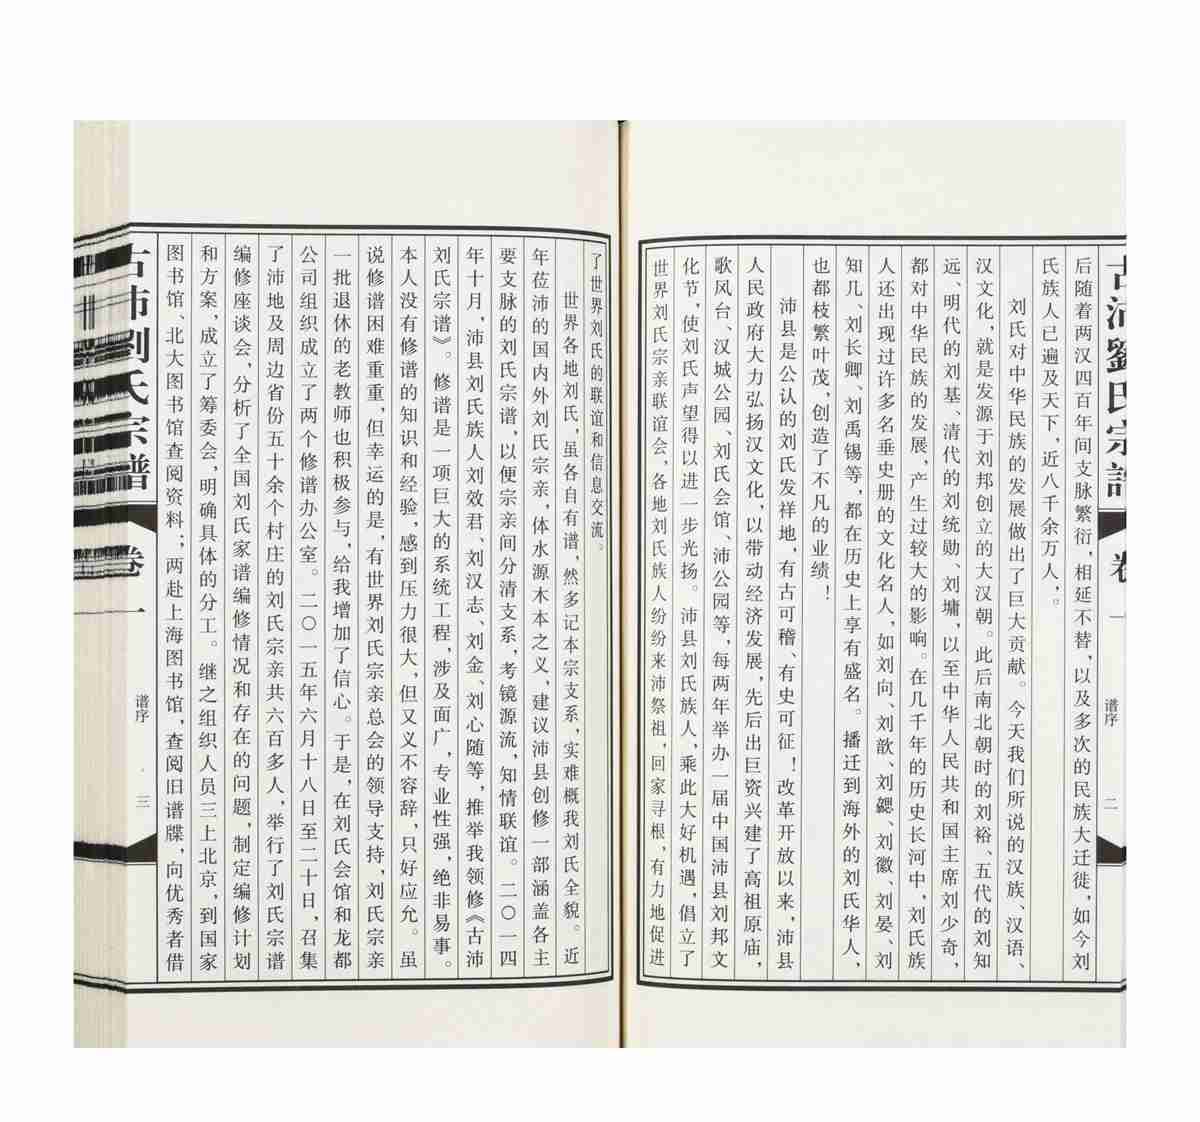 古沛劉氏宗譜
卷一
谱序
二
后随着两汉四百年间支脉繁衍，相延不替，以及多次的民族大迁徙，如今刘
氏族人已遍及天下，近八千余万人，。
刘氏对中华民族的发展做出了巨大贡献。今天我们所说的汉族、汉语、
汉文化，就是发源于刘邦创立的大汉朝。此后南北朝时的刘裕、五代的刘知
远、明代的刘基、清代的刘统勋、刘墉，以至中华人民共和国主席刘少奇，
都对中华民族的发展，产生过较大的影响。在几千年的历史长河中，刘氏族
人还出现过许多名垂史册的文化名人，如刘向、刘歆、刘勰、刘徽、刘晏、刘
知几、刘长卿、刘禹锡等，都在历史上享有盛名。播迁到海外的刘氏华人，
也都枝繁叶茂，创造了不凡的业绩！
沛县是公认的刘氏发祥地，有古可稽、有史可征！改革开放以来，沛县
人民政府大力弘扬汉文化，以带动经济发展，先后出巨资兴建了高祖原庙，
歌风台、汉城公园、刘氏会馆、沛公园等，每两年举办一届中国沛县刘邦文
化节，使刘氏声望得以进一步光扬。沛县刘氏族人，乘此大好机遇，倡立了
世界刘氏宗亲联谊会，各地刘氏族人纷纷来沛祭祖，回家寻根，有力地促进
了世界刘氏的联谊和信息交流。
世界各地刘氏，虽各自有谱，然多记本宗支系，实难概我刘氏全貌。近
年莅沛的国内外刘氏宗亲，体水源木本之义，建议沛县创修一部涵盖各主
要支脉的刘氏宗谱，以便宗亲间分清支系，考镜源流，知情联谊。二〇一四
年十月，沛县刘氏族人刘效君、刘汉志、刘金、刘心随等，推举我领修《古沛
刘氏宗谱》。修谱是一项巨大的系统工程，涉及面广，专业性强，绝非易事。
本人没有修谱的知识和经验，感到压力很大，但又义不容辞，只好应允。虽
说修谱困难重重，但幸运的是，有世界刘氏宗亲总会的领导支持，刘氏宗亲
一批退休的老教师也积极参与，给我增加了信心。于是，在刘氏会馆和龙都
公司组织成立了两个修谱办公室。二〇一五年六月十八日至二十日，召集
了沛地及周边省份五十余个村庄的刘氏宗亲共六百多人，举行了刘氏宗谱
编修座谈会，分析了全国刘氏家谱编修情况和存在的问题，制定编修计划
和方案，成立了筹委会，明确具体的分工。继之组织人员三上北京，到国家
图书馆、北大图书馆查阅资料；两赴上海图书馆，查阅旧谱牒，向优秀者借
古沛劉氏宗譜
卷一
谱序
三